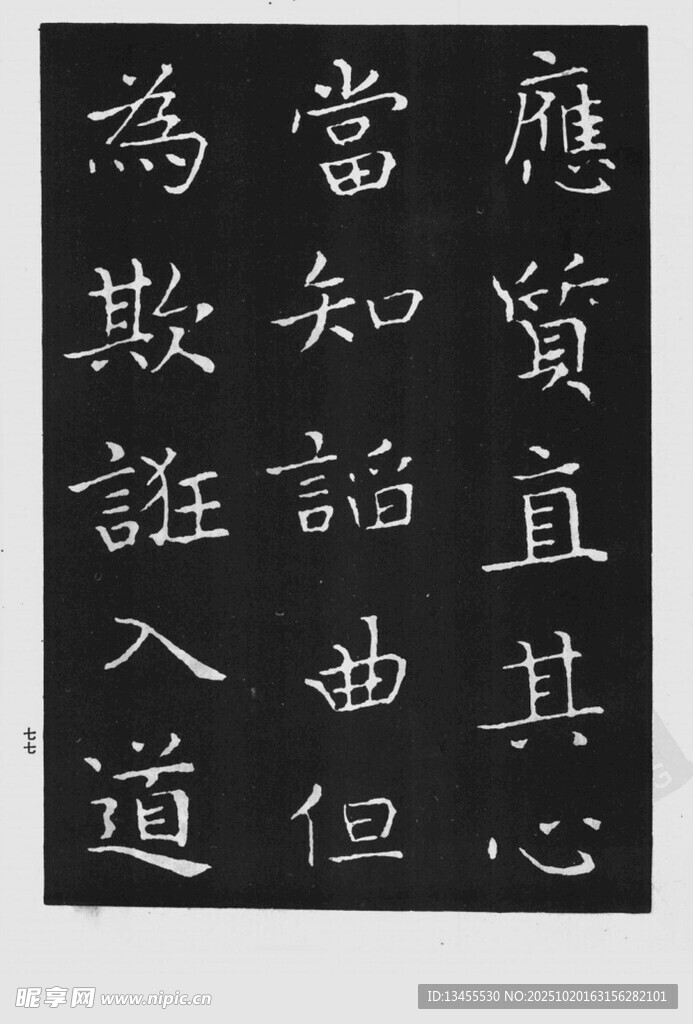 應質直其心
當知謟曲但
為欺誑入道
七七
昵享网 www.nipic.cn
ID:13455530 NO:20251020163156282101